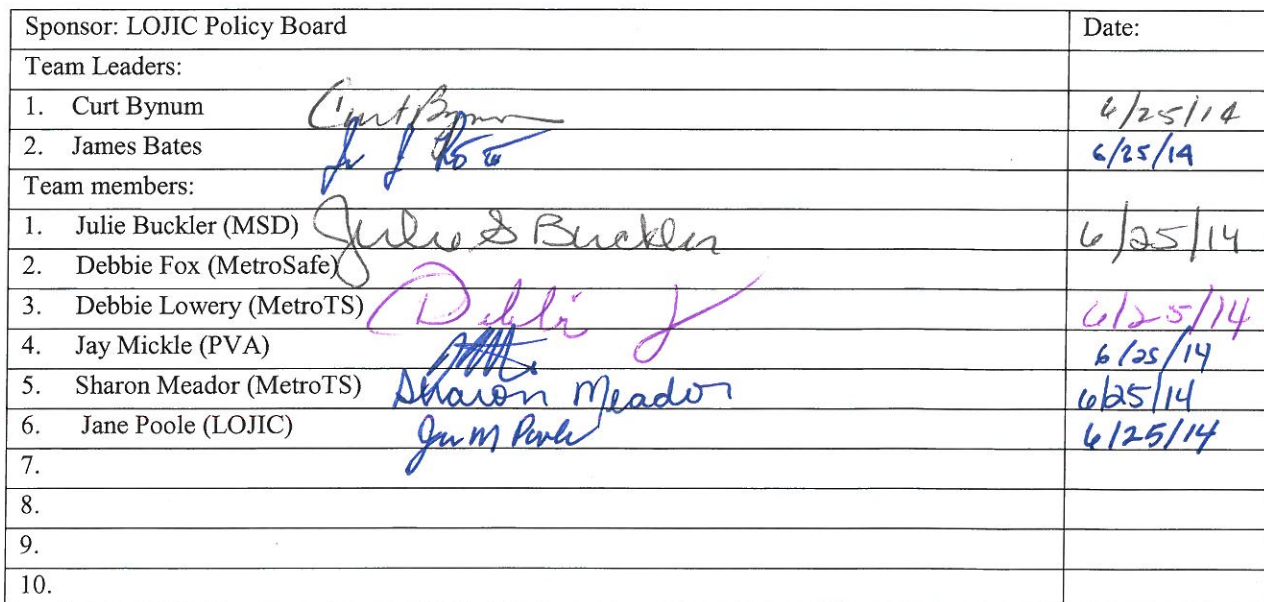 Sponsor: LOJIC Policy Board Date:
Team Leaders:
1. Curt Bynum Curt Bynum 6/25/14
2. James Bates 6/25/14
Team members:
1. Julie Buckler (MSD) Julie S Buckler 6/25/14
2. Debbie Fox (MetroSafe)
3. Debbie Lowery (MetroTS) Debbie L 6/25/14
4. Jay Mickle (PVA) 6/25/14
5. Sharon Meador (MetroTS) Sharon Meador 6/25/14
6. Jane Poole (LOJIC) Jane M Poole 6/25/14
7.
8.
9.
10.